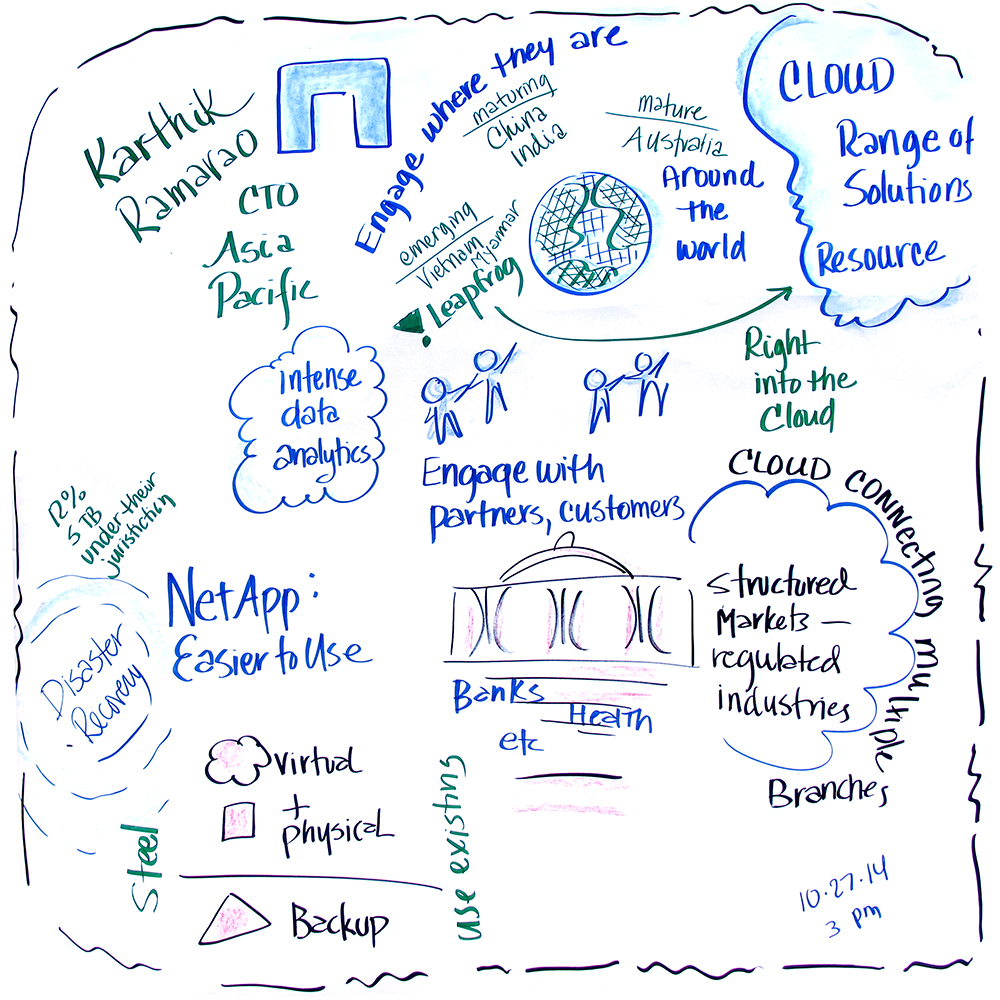 Karthik
Ramarao
CTO
Asia
Pacific
Engage where they are
maturing
China
India
mature
Australia
emerging
Vietnam
Myanmar
Leapfrog
Around
the
world
CLOUD
Range of
Solutions
Resource
Right
into the
Cloud
intense
data
analytics
Engage with
partners, customers
12%
5 TB
under their
jurisdiction
Disaster
Recovery
NetApp:
Easier to Use
Banks
Health
etc
CLOUD CONNECTING multiple
Branches
structured
Markets —
regulated
industries
virtual
+
physical
Steel
Backup
use existing
10.27.14
3 pm